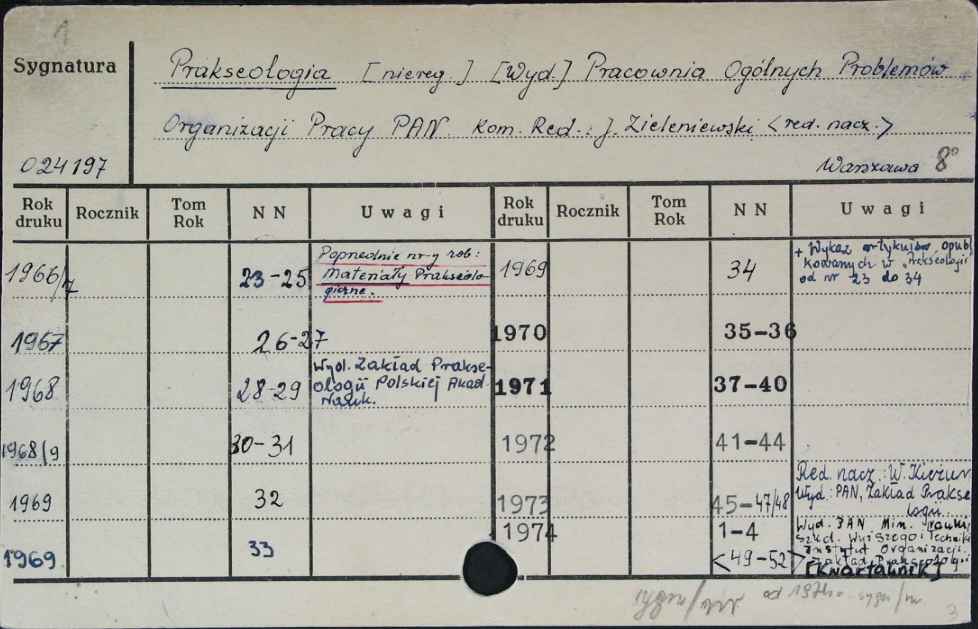 1
Sygnatura
Prakseologia [niereg.] [Wyd.] Pracownia Ogólnych Problemów
Organizacji Pracy PAN. Kom. Red.: J. Zieleniewski <red. nacz.>
024197
Warszawa 8°
Rok druku Rocznik Tom Rok NN Uwagi Rok druku Rocznik Tom Rok NN Uwagi
1966/7 23-25
Poprzednie nr-y zob:
Materiały Prakseolo-
giczne.
1967 26-27
1968 28-29
Wyd. Zakład Prakse-
ologii Polskiej Akad.
Nauk.
1968/9 30-31
1969 32
1969 33
1969 34
+ Wykaz artykułów opubl
kowanych w "Prakseologii
od nr 23 do 34
1970 35-36
1971 37-40
1972 41-44
1973 45-47/48
Red. nacz.: W. Kieżun
Wyd: PAN, Zakład Prakse
logii.
1974 1-4
<49-52>
Wyd. PAN Min. Nauki
Szkol. Wyższego i Techniki
Instytut Organizacji.
Zakład Prakseologii
[Kwartalnik]
3